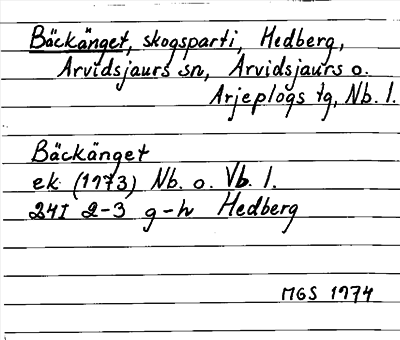 Bäckänget, skogsparti, Hedberg,
Arvidsjaurs sn, Arvidsjaurs o.
Arjeplogs tg, Nb. l.
Bäckänget
ek (1973) Nb. o. Vb. l.
24I 2-3 g-h Hedberg
MGS 1974